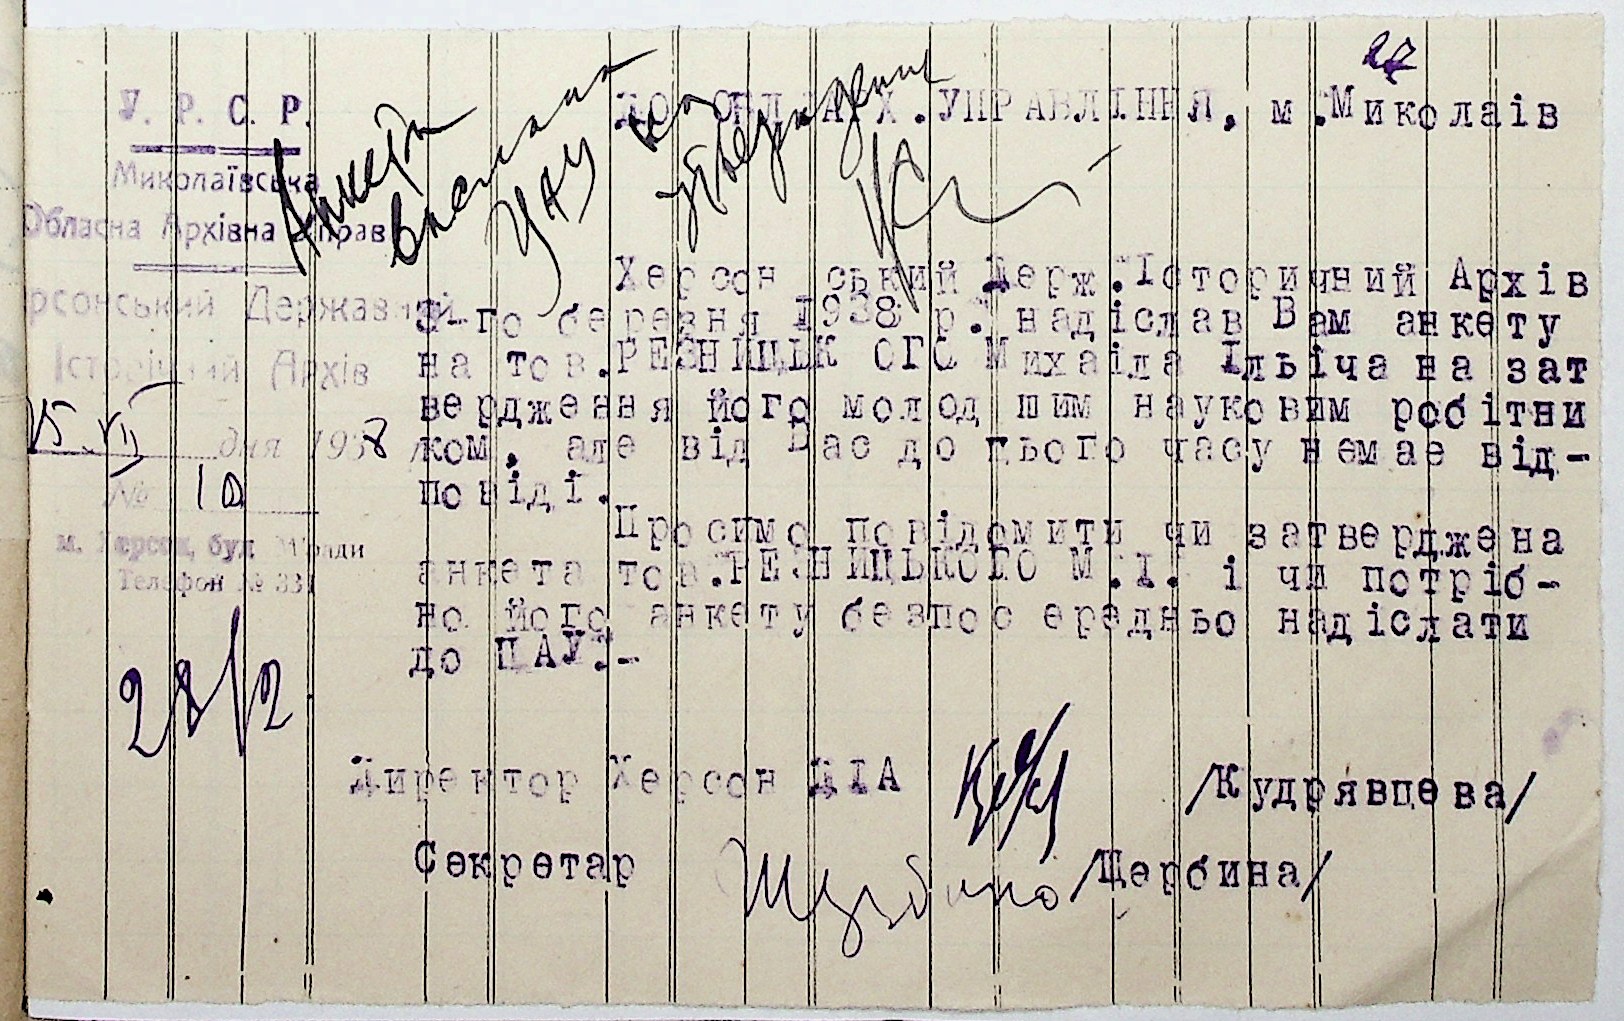 27
У. Р. С. Р.
Миколаївська
Обласна Архівна Управ
рсонський Державний
Історічний Архів
15.VII дня 1938
№ 10
м. Херсон, буд.
Телефон № 331
28/2
Анкета
выслана
ЦАУ на
утверждение
ДО ОБЛ.АРХ.УПРАВЛІННЯ, м.Миколаів
Херсон ський Держ.Історичний Архів
3-го березня 1938 р. надіслав Вам анкету
на тов.РЕЗНИЦЬК ОГО Михаіла Ільіча на зат
вердження його молод шим науковим робітни
ком, але від Вас до цього часу немае від-
повіді.
Просимо повідомити чи затверджена
анкета тов.РЕЗНИЦЬКОГО М.І. і чи потріб-
но його анкету безпос ередньо надіслати
до ЦАУ.-
Директор Херсон ДІА /Кудрявцева/
Секретар Щербина /Щербина/